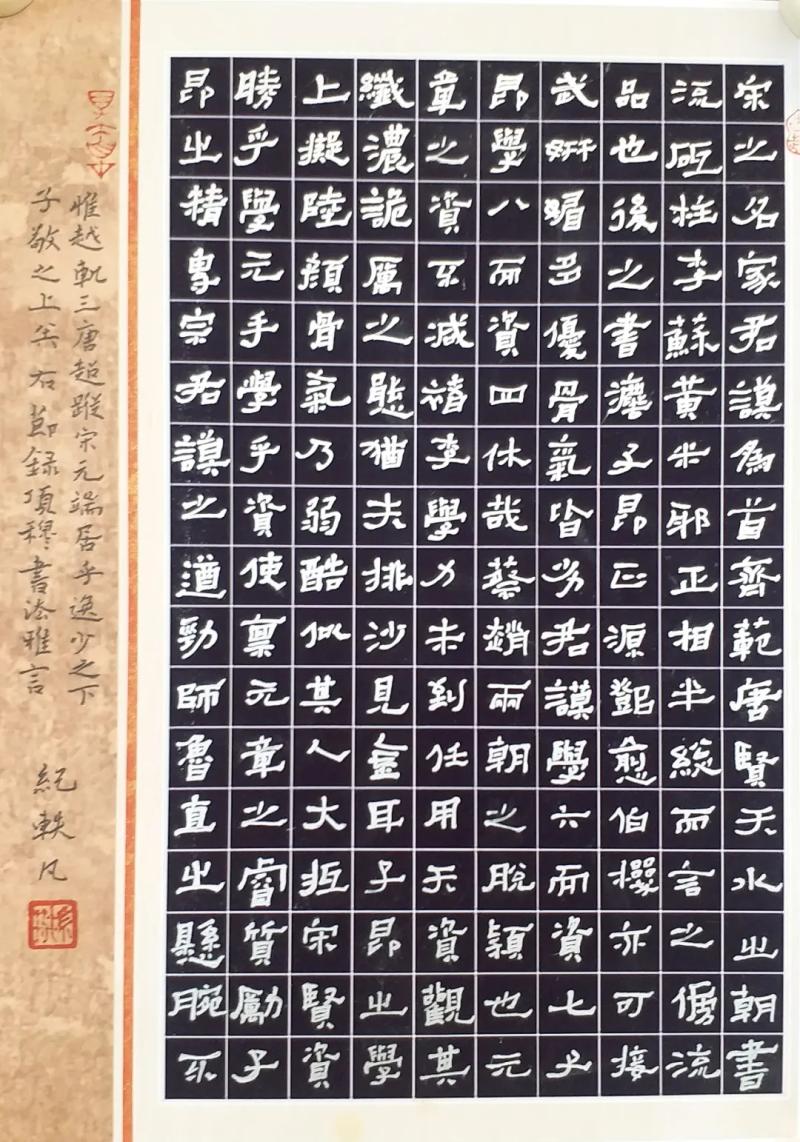 宋之名家君謨為首齊範唐賢天水之朝書
流砥柱李蘇黃米邪正相半總而言之傍流
品也後之書灋子昂正源鄧愈伯機亦可接
武妍媚多優骨氣皆劣君謨學六而資七子
昂學八而資四休哉蔡趙兩朝之脫穎也元
章之資不減褚李學力未到任用天資觀其
纖濃詭厲之態猶夫排沙見金耳子昂之學
上擬陸顏骨氣乃弱酷似其人大抵宋賢資
勝乎學元手學乎資使稟元章之睿質勵子
昂之精專宗君謨之遒勁師魯直之懸腕不
惟越軌三唐超蹤宋元端居乎逸少之下
子敬之上矣右節錄項穆書法雅言
紀軼凡